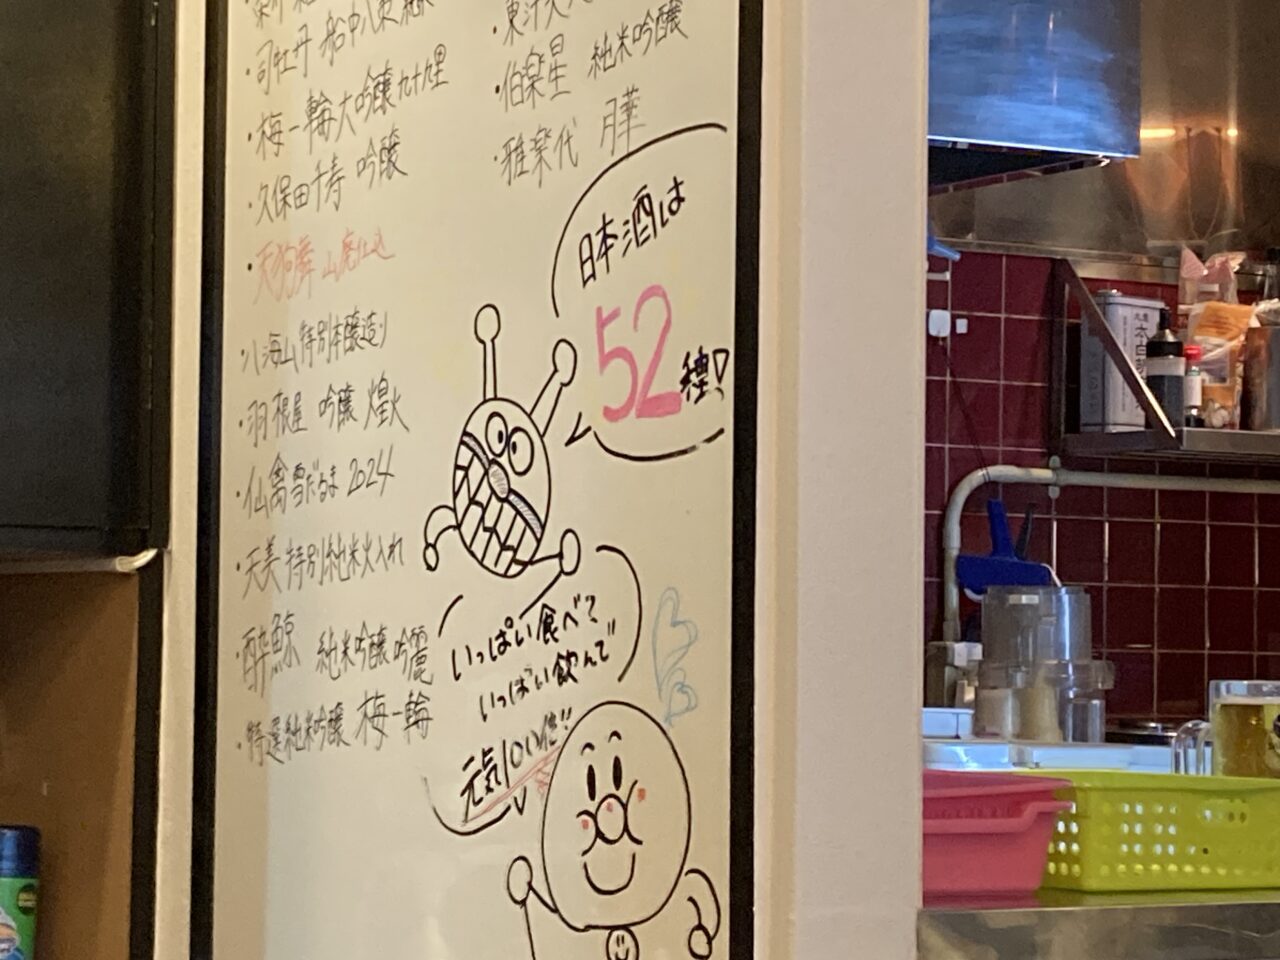 ・司牡丹 船中八策
・梅一輪大吟醸九十九里
・久保田千寿 吟醸
・天狗舞 山廃仕込
・八海山特別本醸造り
・羽根屋 吟醸 煌火
・仙禽雪だるま 2024
・天美 特別純米火入れ
・酔鯨 純米吟醸 吟麗
・特選純米吟醸 梅一輪
・伯楽星 純米吟醸
・雅楽代 月華
日本酒は
52種!
いっぱい食べて
いっぱい飲んで
元気100倍!!
太白